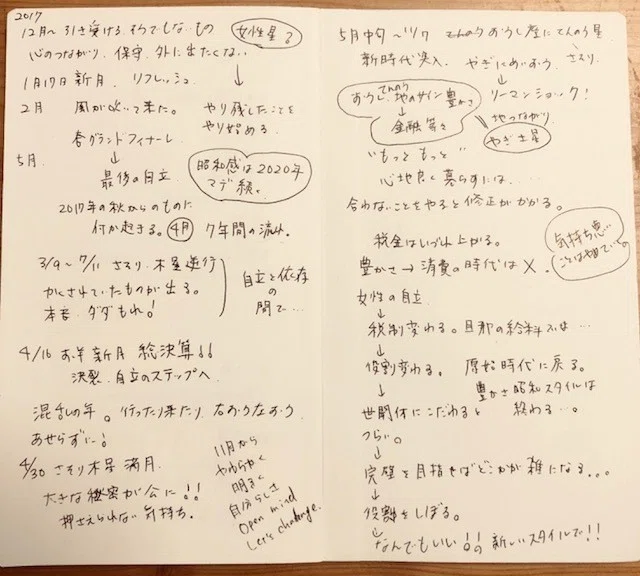 2017
12月〜 引き受ける。そうでしないもの
心のつながり、保守、外に出たくない
女性星る
↓
1月17日 新月、リフレッシュ
2月 風が吹いて来た。 やり残したことを
やり始める
春グランドフィナーレ
↓
5月. 最後の自立
昭和感は2020年
マデ続。
2017年の秋からのものに
付が起きる。 4月 7年間の流れ
3/9〜7/11 さそり、木星逆行
かくされていたものが出る。
本音、ダダもれ!
自立と依存
の
間で…
4/16 お羊新月 総決算!!
決裂、自立のステップへ
混乱の年。行ったり来たり 右おう左おう
あせらずに!
4/30 さそり木星満月
大きな秘密が公に!!
押さえられない気持ち。
11月から
やわらかく
明るく
自分らしさ
Open mind
Let's challenge.
5月中旬〜11/7 てんのう おうし座にてんのう星
新時代突入、 やぎにめいおう、 さそり
↓
リーマンショック!
てんのう
おうし、地のサイン 豊かさ
→ 金融 等々
地つながり
やぎ土星
↓
"もっともっと"
心地良く暮らすには、…
合わないことをやると修正がかかる。
税金はいづれ上がる。
気持ち悪い
ことはやめていく
豊かさ→消費の時代は×.
女性の自立
↓
税制変わる。旦那の給料では…
↓
役割変わる。 原始時代に戻る。
↓ 豊かさ昭和スタイルは
世間体にこだわると 終わる…。
つらい。
↓
完璧を目指せばどこかが雑になる…
↓
役割をしぼる。
↓
なんでもいい!!の 新しいスタイルで!!